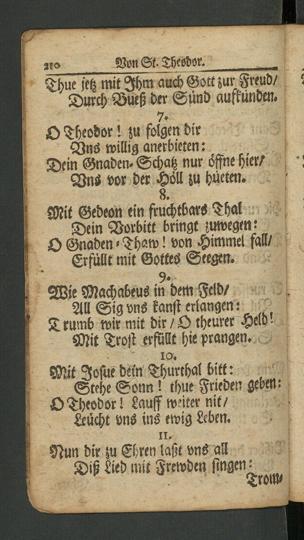 210 Von St. Theodor.
Thue jetz mit Jhm auch Gott zur Freud/
Durch Bueß der Sünd aufkünden.
7.
O Theodor! zu folgen dir
Vns willig anerbieten:
Dein Gnaden-Schatz nur öffne hier/
Vns vor der Höll zu hüeten.
8.
Mit Gedeon ein fruchtbars Thal
Dein Vorbitt bringt zuwegen:
O Gnaden-Thaw! von Himmel fall/
Erfüllt mit Gottes Seegen.
9.
Wie Machabeus in dem Feld/
All Sig vns kanst erlangen:
Trumb wir mit dir/ O theurer Held!
Mit Trost erfüllt hie prangen.
10.
Mit Josue dein Thurthal bitt:
Stehe Sonn! thue Frieden geben:
O Theodor! Lauff weiter nit/
Leücht vns ins ewig Leben.
11.
Nun dir zu Ehren laßt vns all
Diß Lied mit Frewden singen:
Trom-